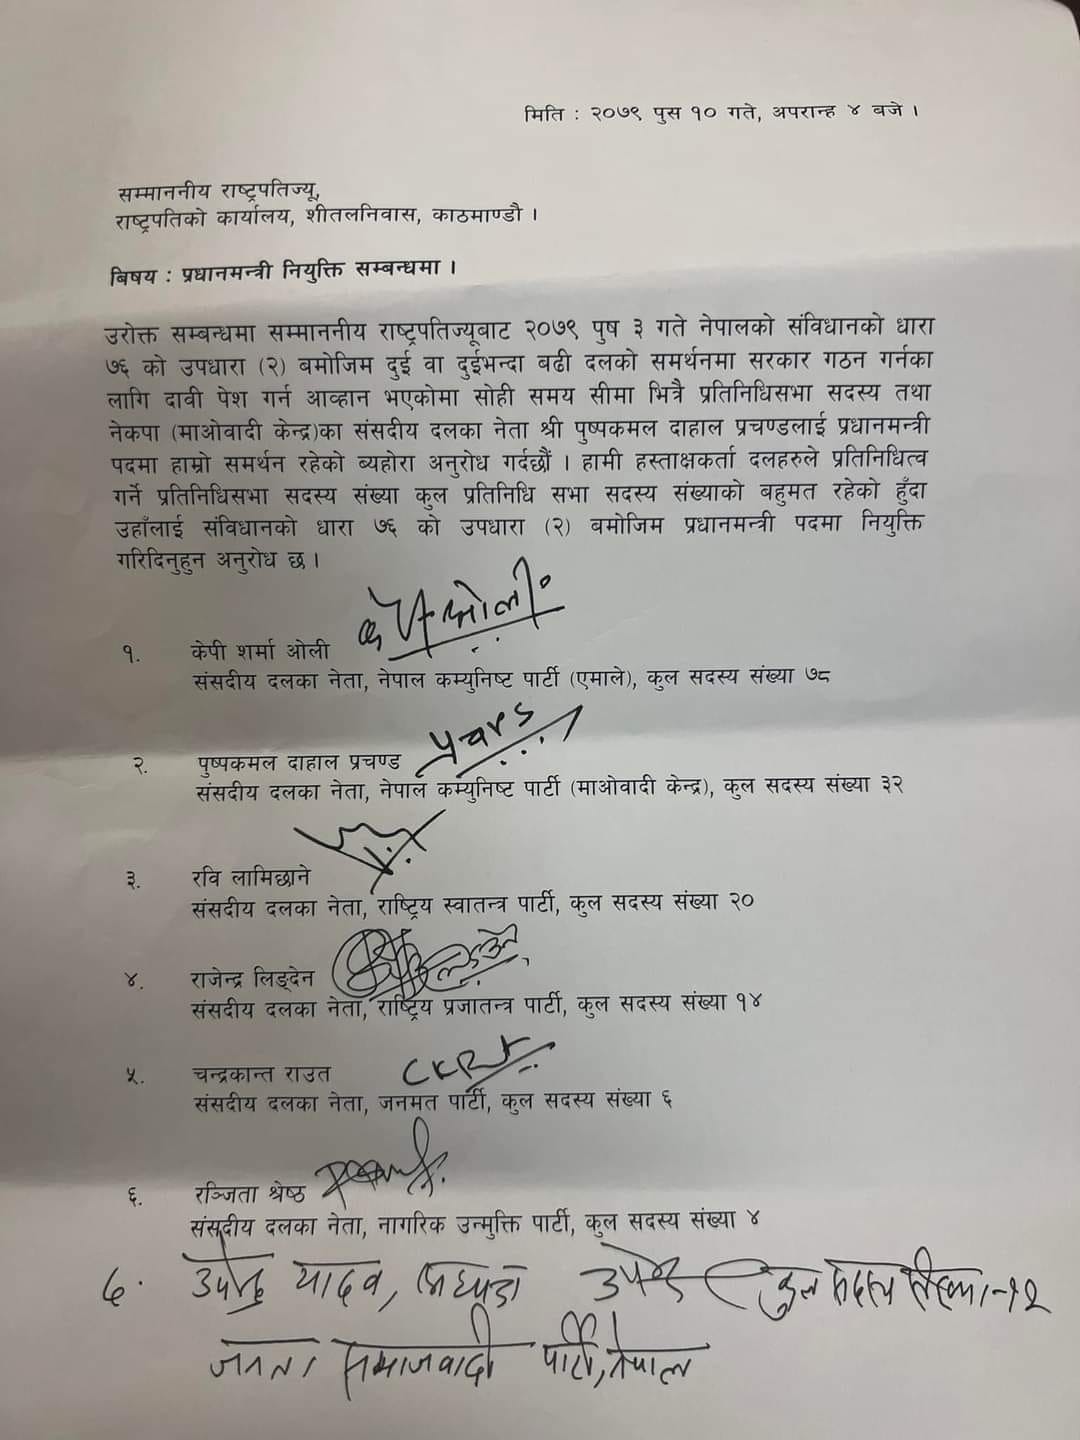 मिति : २०७९ पुस १० गते, अपरान्ह ४ बजे ।
सम्माननीय राष्ट्रपतिज्यू,
राष्ट्रपतिको कार्यालय, शीतलनिवास, काठमाण्डौ ।
बिषय : प्रधानमन्त्री नियुक्ति सम्बन्धमा ।
उरोक्त सम्बन्धमा सम्माननीय राष्ट्रपतिज्यूबाट २०७९ पुष ३ गते नेपालको संविधानको धारा
७६ को उपधारा (२) बमोजिम दुई वा दुईभन्दा बढी दलको समर्थनमा सरकार गठन गर्नका
लागि दावी पेश गर्न आव्हान भएकोमा सोही समय सीमा भित्रै प्रतिनिधिसभा सदस्य तथा
नेकपा (माओवादी केन्द्र)का संसदीय दलका नेता श्री पुष्पकमल दाहाल प्रचण्डलाई प्रधानमन्त्री
पदमा हाम्रो समर्थन रहेको ब्यहोरा अनुरोध गर्दछौं । हामी हस्ताक्षकर्ता दलहरुले प्रतिनिधित्व
गर्ने प्रतिनिधिसभा सदस्य संख्या कुल प्रतिनिधि सभा सदस्य संख्याको बहुमत रहेको हुँदा
उहाँलाई संविधानको धारा ७६ को उपधारा (२) बमोजिम प्रधानमन्त्री पदमा नियुक्ति
गरिदिनुहुन अनुरोध छ ।
१. केपी शर्मा ओली
संसदीय दलका नेता, नेपाल कम्युनिष्ट पार्टी (एमाले), कुल सदस्य संख्या ७८
२. पुष्पकमल दाहाल प्रचण्ड
संसदीय दलका नेता, नेपाल कम्युनिष्ट पार्टी (माओवादी केन्द्र), कुल सदस्य संख्या ३२
३. रवि लामिछाने
संसदीय दलका नेता, राष्ट्रिय स्वातन्त्र पार्टी, कुल सदस्य संख्या २०
४. राजेन्द्र लिङ्देन
संसदीय दलका नेता, राष्ट्रिय प्रजातन्त्र पार्टी, कुल सदस्य संख्या १४
५. चन्द्रकान्त राउत
संसदीय दलका नेता, जनमत पार्टी, कुल सदस्य संख्या ६
६. रञ्जिता श्रेष्ठ
संसदीय दलका नेता, नागरिक उन्मुक्ति पार्टी, कुल सदस्य संख्या ४
७. उपेन्द्र यादव, अध्यक्ष कुल सदस्य संख्या-१२
जनता समाजवादी पार्टी, नेपाल